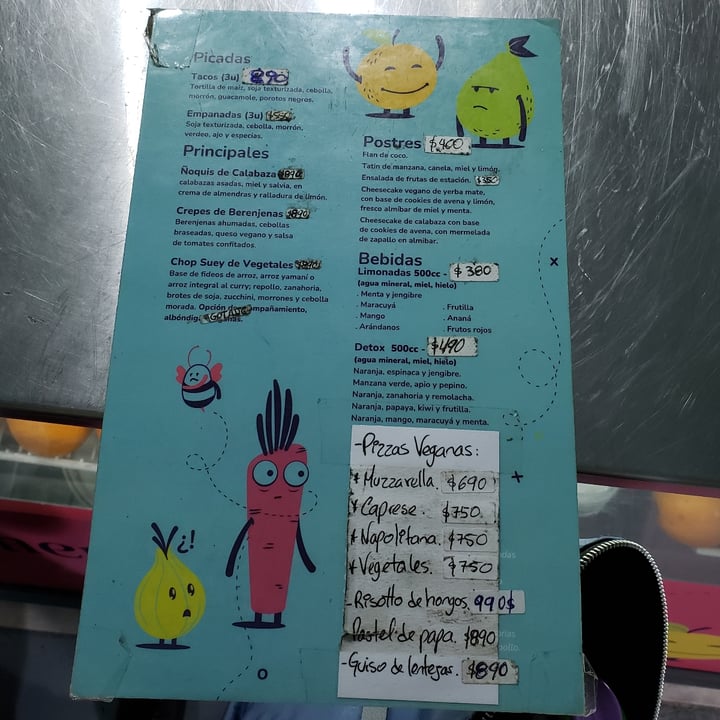 Picadas
Tacos (3u) 890
Tortilla de maíz, soja texturizada, cebolla,
morrón, guacamole, porotos negros.
Empanadas (3u) $550
Soja texturizada, cebolla, morrón,
verdeo, ajo y especias.
Principales
Ñoquis de Calabaza $890
calabazas asadas, miel y salvia, en
crema de almendras y ralladura de limón.
Crepes de Berenjenas $890
Berenjenas ahumadas, cebollas
braseadas, queso vegano y salsa
de tomates confitados.
Chop Suey de Vegetales $890
Base de fideos de arroz, arroz yamaní o
arroz integral al curry; repollo, zanahoria,
brotes de soja, zucchini, morrones y cebolla
morada. Opción de acompañamiento,
¿!
Postres $400
Flan de coco.
Tatin de manzana, canela, miel y limón.
Ensalada de frutas de estación. $350
Cheesecake vegano de yerba mate,
con base de cookies de avena y limón,
fresco almíbar de miel y menta.
Cheesecake de calabaza con base
de cookies de avena, con mermelada
de zapallo en almíbar.
Bebidas
Limonadas 500cc - $380
(agua mineral, miel, hielo)
. Menta y jengibre
. Maracuyá
. Mango
. Arándanos
. Frutilla
. Ananá
. Frutos rojos
Detox 500cc - $490
(agua mineral, miel, hielo)
Naranja, espinaca y jengibre.
Manzana verde, apio y pepino.
Naranja, zanahoria y remolacha.
Naranja, papaya, kiwi y frutilla.
Naranja, mango, maracuyá y menta.
- Pizzas Veganas:
* Muzzarella. $690
* Caprese. $750
* Napolitana. $750
* Vegetales. $750
- Risotto de hongos. 990$
- Pastel de papa. $890
- Guiso de lentejas. $890